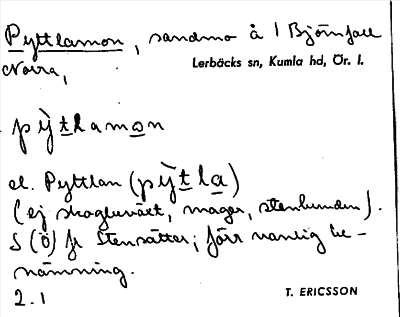 Pyttlamon, sandmo å 1 Björnfall
Norra,
Lerbäcks sn, Kumla hd, Ör. l.
pỳtlamon
el. Pyttlan (pỳtla)
(ej skogbeväxt, mager, stenbunden).
S (Ö) fr Stensätter; förr vanlig be-
nämning.
2.1
T. ERICSSON